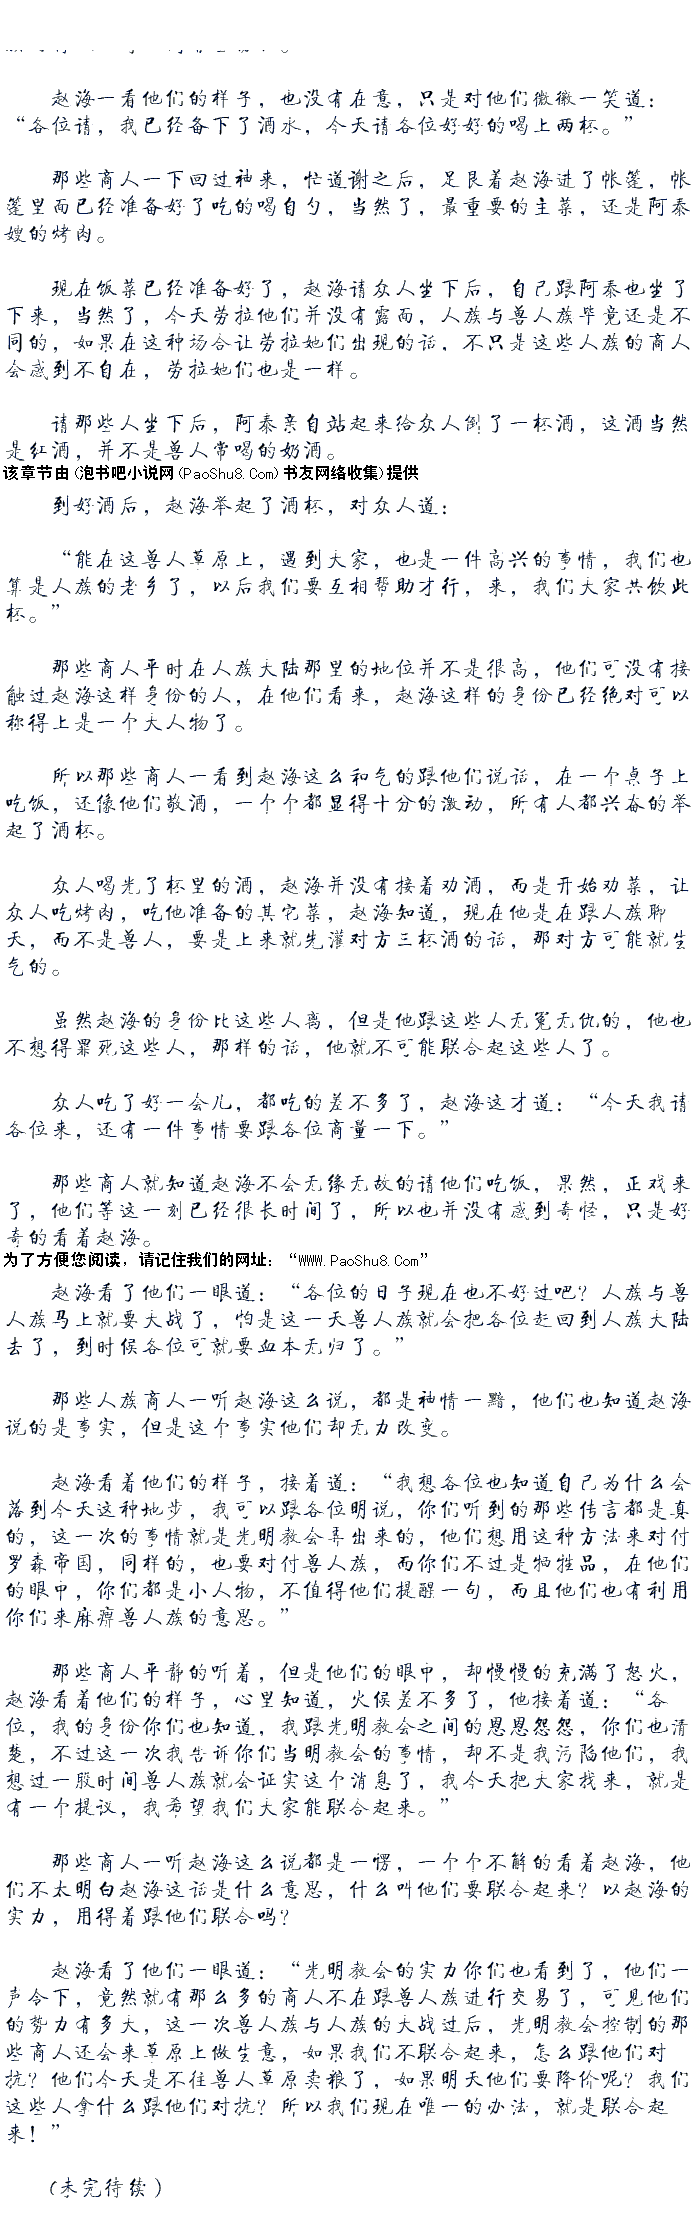 赵海一看他们的样子，也没有在意，只是对他们微微一笑道：
“各位请，我已经备下了酒水，今天请各位好好的喝上两杯。”
那些商人一下回过神来，忙道谢之后，足艮着赵海进了帐篷，帐
篷里面已经准备好了吃的喝自勺，当然了，最重要的主菜，还是阿泰
嫂的烤肉。
现在饭菜已经准备好了，赵海请众人坐下后，自己跟阿泰也坐了
下来，当然了，今天劳拉他们并没有露面，人族与兽人族毕竟还是不
同的，如果在这种场合让劳拉她们出现的话，不只是这些人族的商人
会感到不自在，劳拉她们也是一样。
请那些人坐下后，阿泰亲自站起来给众人倒了一杯酒，这酒当然
是红酒，并不是兽人常喝的奶酒。
该章节由(泡书吧小说网(PaoShu8.Com)书友网络收集)提供
到好酒后，赵海举起了酒杯，对众人道：
“能在这兽人草原上，遇到大家，也是一件高兴的事情，我们也
算是人族的老乡了，以后我们要互相帮助才行，来，我们大家共饮此
杯。”
那些商人平时在人族大陆那里的地位并不是很高，他们可没有接
触过赵海这样身份的人，在他们看来，赵海这样的身份已经绝对可以
称得上是一个大人物了。
所以那些商人一看到赵海这么和气的跟他们说话，在一个桌子上
吃饭，还像他们敬酒，一个个都显得十分的激动，所有人都兴奋的举
起了酒杯。
众人喝光了杯里的酒，赵海并没有接着劝酒，而是开始劝菜，让
众人吃烤肉，吃他准备的其它菜，赵海知道，现在他是在跟人族聊
天，而不是兽人，要是上来就先灌对方三杯酒的话，那对方可能就生
气的。
虽然赵海的身份比这些人离，但是他跟这些人无冤无仇的，他也
不想得罪死这些人，那样的话，他就不可能联合起这些人了。
众人吃了好一会儿，都吃的差不多了，赵海这才道：“今天我请
各位来，还有一件事情要跟各位商量一下。”
那些商人就知道赵海不会无缘无故的请他们吃饭，果然，正戏来
了，他们等这一刻已经很长时间了，所以也并没有感到奇怪，只是好
奇的看着赵海。
为了方便您阅读，请记住我们的网址：“WWW.PaoShu8.Com”
赵海看了他们一眼道：“各位的日子现在也不好过吧？人族与兽
人族马上就要大战了，怕是这一天兽人族就会把各位赶回到人族大陆
去了，到时候各位可就要血本无归了。”
那些人族商人一听赵海这么说，都是神情一黯，他们也知道赵海
说的是事实，但是这个事实他们却无力改变。
赵海看着他们的样子，接着道：“我想各位也知道自己为什么会
落到今天这种地步，我可以跟各位明说，你们听到的那些传言都是真
的，这一次的事情就是光明教会弄出来的，他们想用这种方法来对付
罗森帝国，同样的，也要对付兽人族，而你们不过是牺牲品，在他们
的眼中，你们都是小人物，不值得他们提醒一句，而且他们也有利用
你们来麻痹兽人族的意思。”
那些商人平静的听着，但是他们的眼中，却慢慢的充满了怒火，
赵海看着他们的样子，心里知道，火候差不多了，他接着道：“各
位，我的身份你们也知道，我跟光明教会之间的恩恩怨怨，你们也清
楚，不过这一次我告诉你们当明教会的事情，却不是我污陷他们，我
想过一股时间兽人族就会证实这个消息了，我今天把大家找来，就是
有一个提议，我希望我们大家能联合起来。”
那些商人一听赵海这么说都是一愣，一个个不解的看着赵海，他
们不太明白赵海这话是什么意思，什么叫他们要联合起来？以赵海的
实力，用得着跟他们联合吗？
赵海看了他们一眼道：“光明教会的实力你们也看到了，他们一
声令下，竟然就有那么多的商人不在跟兽人族进行交易了，可见他们
的势力有多大，这一次兽人族与人族的大战过后，光明教会控制的那
些商人还会来草原上做生意，如果我们不联合起来，怎么跟他们对
抗？他们今天是不往兽人草原卖粮了，如果明天他们要降价呢？我们
这些人拿什么跟他们对抗？所以我们现在唯一的办法，就是联合起
来！”
(未完待续)